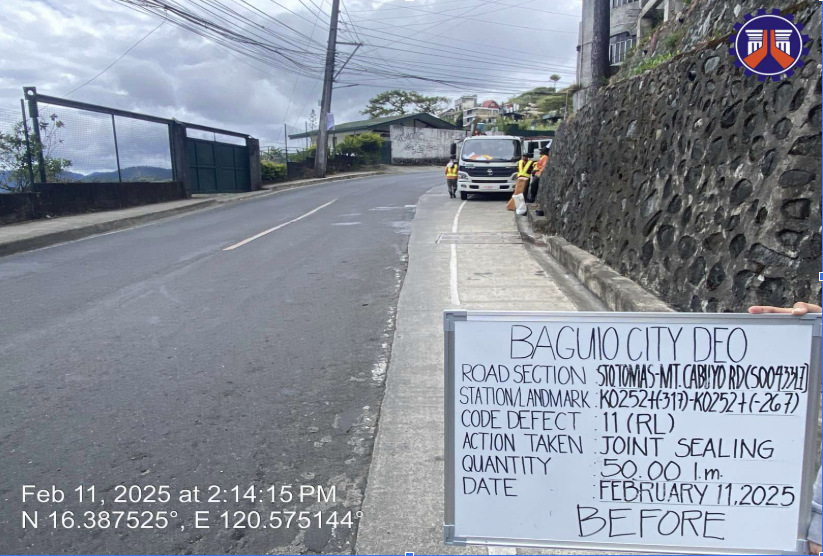 BAGUIO CITY DEO
ROAD SECTION : STO.TOMAS-MT. CABUYO RD(S00433LZ)
STATION/LANDMARK : K0252+(-317)-K0252+(-267)
CODE DEFECT : 11 (RL)
ACTION TAKEN : JOINT SEALING
QUANTITY : 50.00 l.m.
DATE : FEBRUARY 11, 2025
BEFORE
Feb 11, 2025 at 2:14:15 PM
N 16.387525°, E 120.575144°